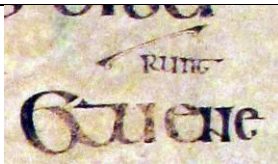 runt
Et uene